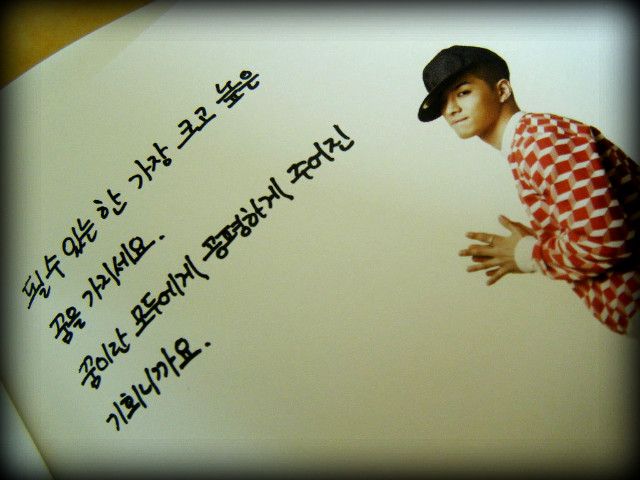 될수 있는 한 가장 크고 높은
꿈을 가지세요.
꿈이란 모두에게 공평하게 주어진
기회니까요.